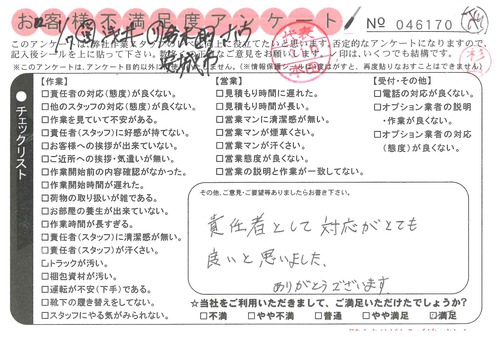 お客様不満足度アンケート
No 046170
このアンケートは、弊社作業とスタッフのレベル向上に役立てたいと思います。否定的なアンケートになりますので、
記入後シールを上に貼って下さい。
お願いします。レ印は、いくつでも結構です。
【作業】
□責任者の対応(態度)が良くない。
□他のスタッフの対応(態度)が良くない。
□作業を見ていて不安がある。
□責任者(スタッフ)に好感が持てない。
□お客様への挨拶が出来ていない。
□ご近所への挨拶・気遣いが無い。
□作業開始前の内容確認がなかった。
□作業開始時間が遅れた。
□荷物の取り扱いが雑である。
□お部屋の養生が出来ていない。
□作業時間が長すぎる。
□責任者(スタッフ)に清潔感が無い。
□責任者(スタッフ)が汗くさい。
□トラックが汚い。
□梱包資材が汚い。
□運転が不安(下手)である。
□靴下の履き替えをしてない。
□スタッフにやる気がみられない。
【営業】
□見積もり時間に遅れた。
□見積もり時間が長い。
□営業マンに清潔感が無い。
□営業マンが煙草くさい。
□営業マンが汗くさい。
□営業態度が良くない。
□営業の説明と作業が一致してない。
【受付・その他】
□電話の対応が良くない。
□オプション業者の説明
・作業が良くない。
□オプション業者の対応
(態度)が良くない。
チェックリスト
その他、ご意見・ご要望等ありましたらお書き下さい。
責任者として対応がとても
良いと思いました、
ありがとうございます
☆当社をご利用いただきまして、ご満足いただけたでしょうか?
□不満 □やや不満 □普通 □やや満足 ☑満足